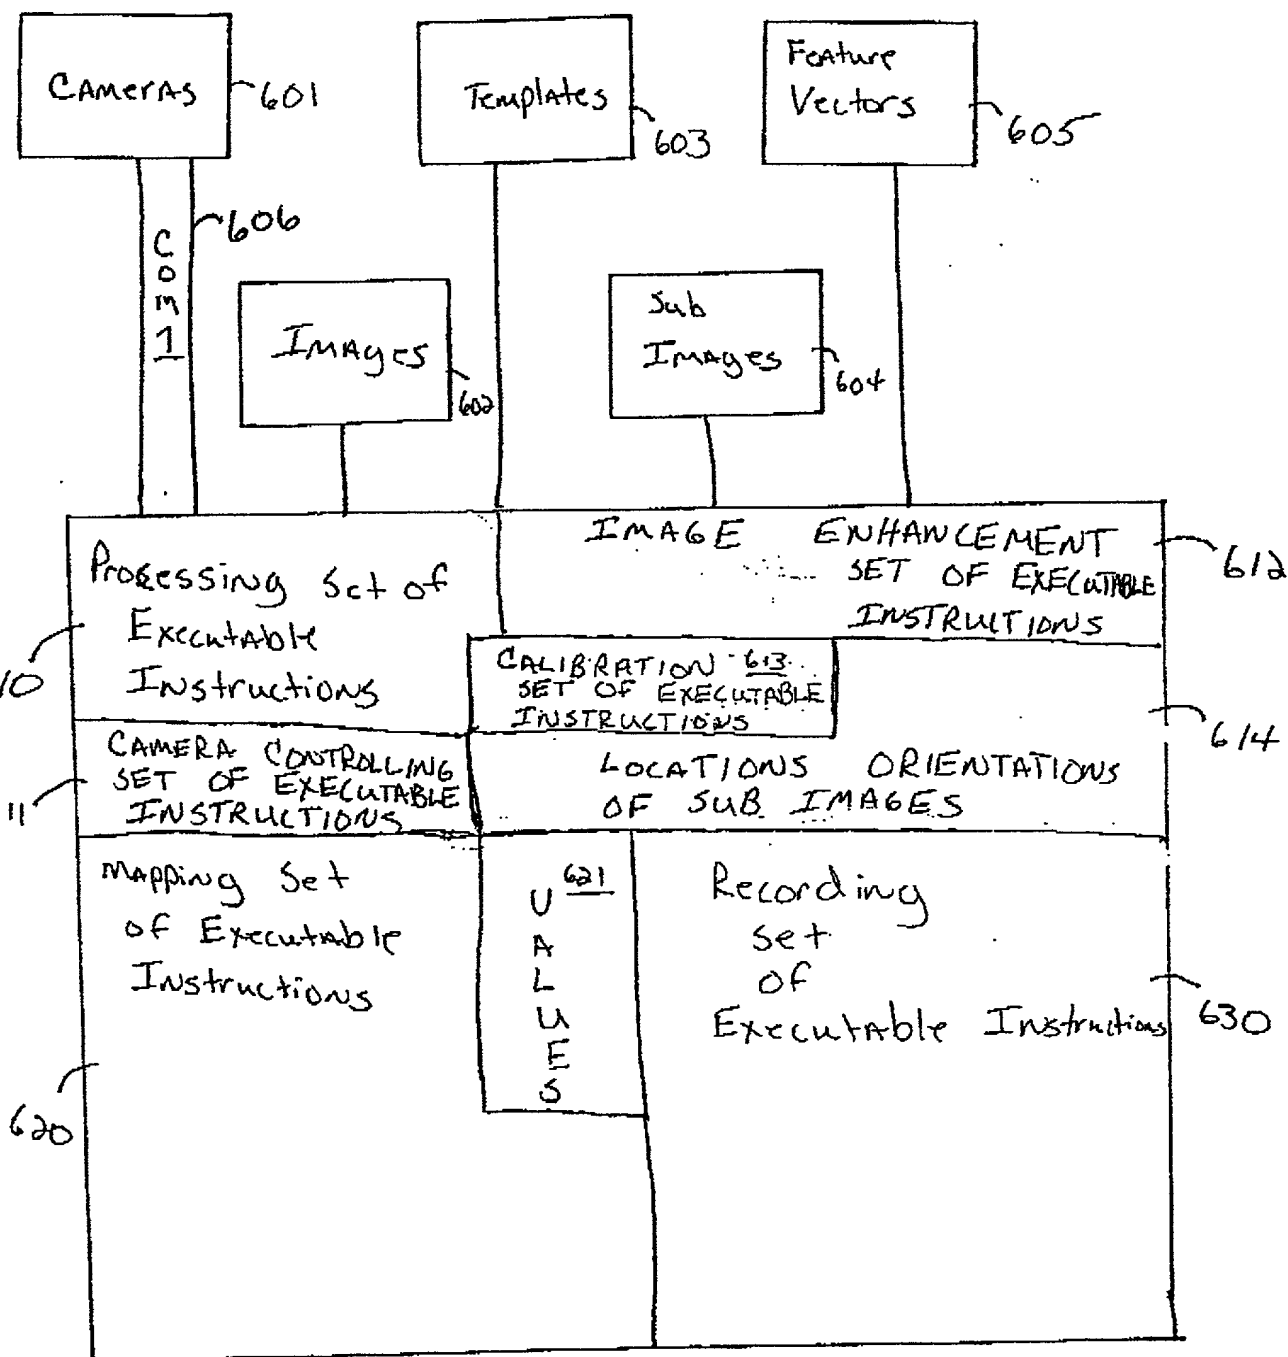 Cameras
601
Templates
603
Feature
Vectors
605
606
Com 1
Images
602
Sub
Images
604
Processing Set of
Executable
Instructions
10
IMAGE ENHANCEMENT
SET OF EXECUTABLE
INSTRUCTIONS
612
CALIBRATION 613
SET OF EXECUTABLE
INSTRUCTIONS
614
CAMERA CONTROLLING
SET OF EXECUTABLE
INSTRUCTIONS
11
LOCATIONS ORIENTATIONS
OF SUB IMAGES
Mapping Set
of Executable
Instructions
620
621
VALUES
Recording
Set
of
Executable Instructions
630